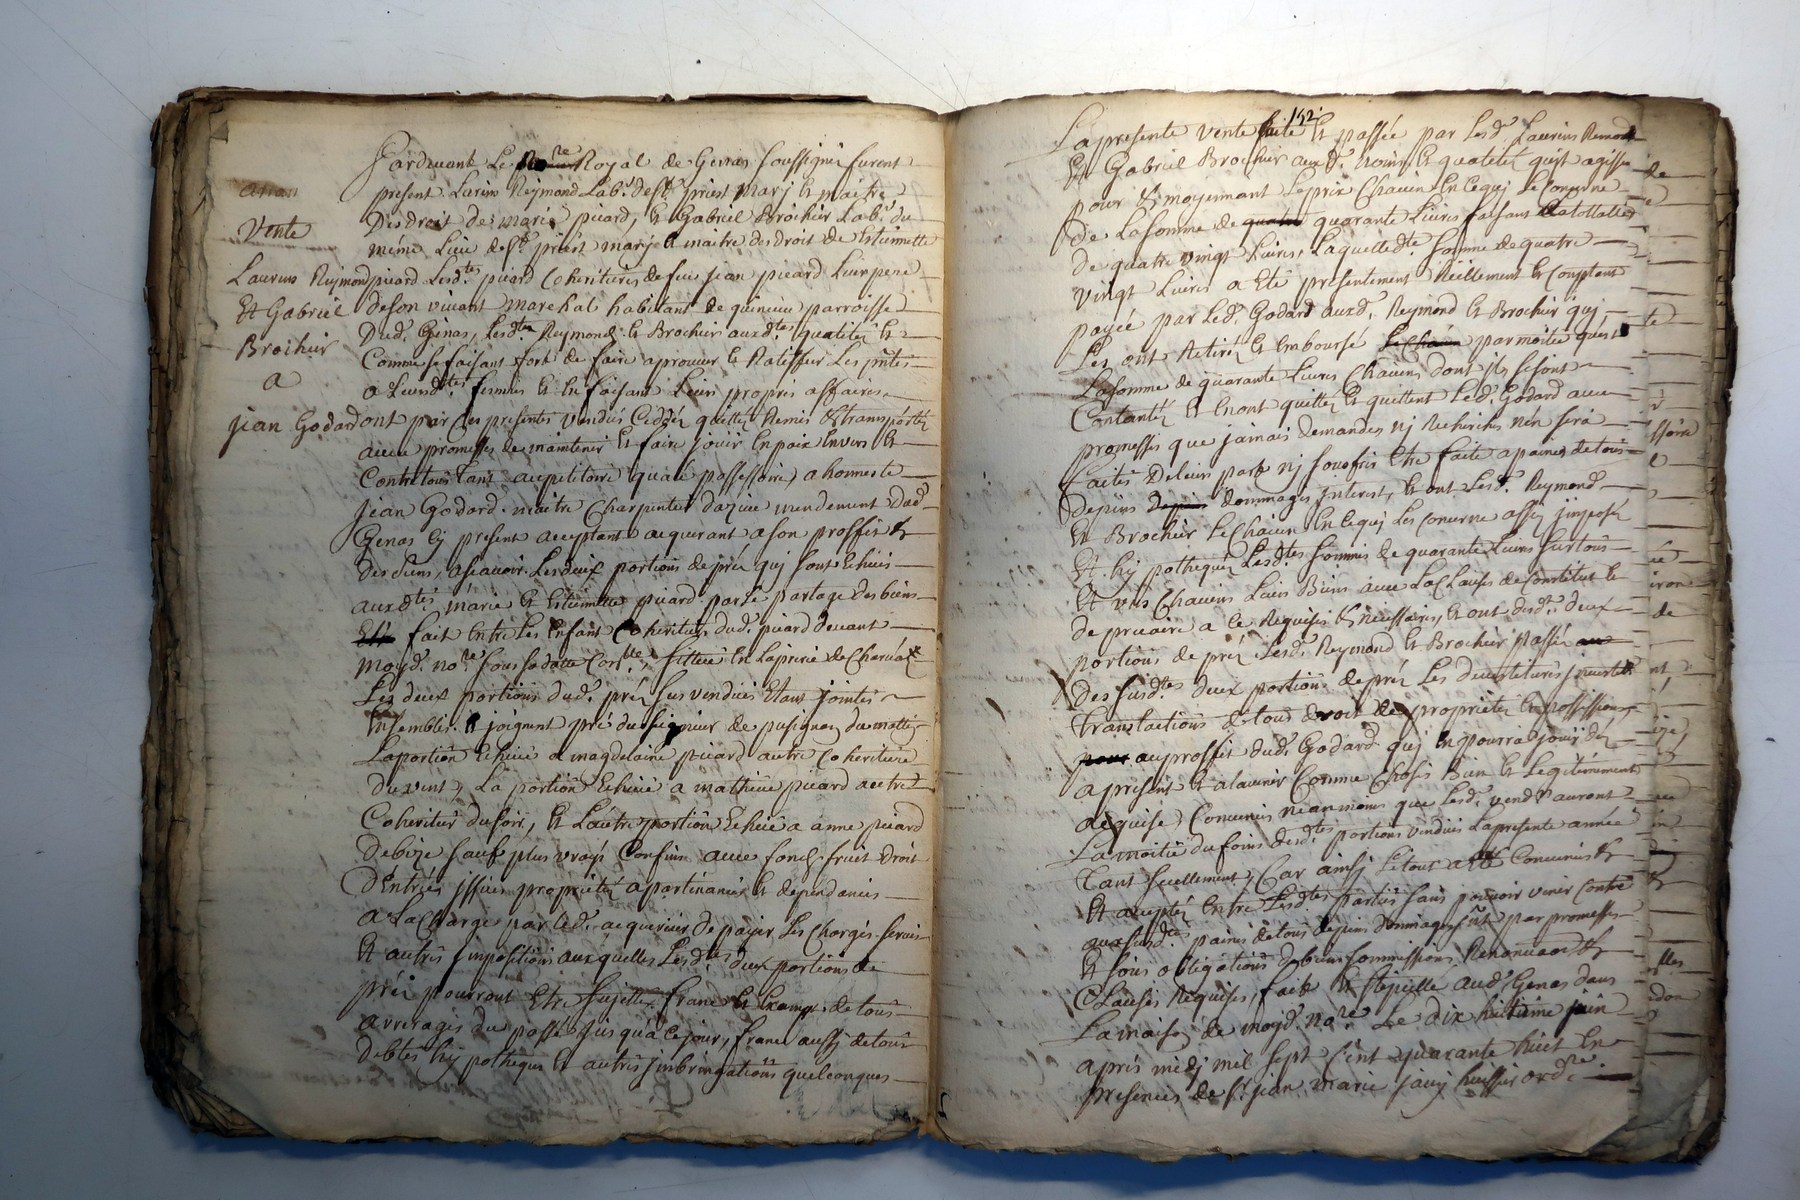 Pardevant Le No.re Royal de Genas soussigné furent
present Laurins Reymond Lab.r de st. priest Marj et maitre
Des droit de marie picard, et Gabriel Brochier Lab.r du
méme Lieu de st. priest marj et maitre des droit de Estiennette
picard Lesd.tes picard Coheritieres de feu jean picard Leur pere
de son vivant marechal habitant de quineau parroisse
Dud. Genas, Lesd.ts Reymond et Brochier auxd.tes qualités et
Comme se faisant fort de faire aprouver et Ratiffier Les p̃ntes
a Leursd.tes femmes et en faisant Leurs propres affaires
ont par Ces presentes vendus, Ceddés quittés Remis et transportés
avec promesses de maintenir et faire jouir en paix Envers et
Contre tous tant au petitoire que au possessoire, a honneste
jean Godard maitre Charpentier mendement dud.
Genas Cy present acceptant acquerant a son proffit et
des siens, ascavoir Les deux portions de pré quj sont Echües
auxd.tes marie et Estiennette picard par Le partage des biens
fait Entre Les Enfant Coheritiers dud. picard devant
moyd. no.re sous sa datte Cott.lée, sittué En La prerie de
Les deux portions dud. pré sus vendües Etant jointes
Ensembles. joignent pré du seigneur de pusignan du matin
La portion Echüe a magdelaine picard autre Coheritiere
du vent, La portion Echüe a mathieu picard autre
Coheritier du soir, et L'autre portion Echüe a anne picard
De bize sauf plus vrays Confins avec fond, fruit droit
D'Entrées issües proprietés apartenances et dependances
a La Charge par Led. acquereur de payer Les Charges servis
Et autres jmpositions auxquelles Lesd.tes deux portions de
pré pourront Etre sujettes, franc et Exempt de tous
arrerages du passé jusqua Ce jour, franc aussj de tous
debtes hypotheques et autres jmbringations quelconques
Vente
Laurins Reymond
Et Gabriel
Brochier
a
jean Godard
152
La presente vente faite et passée par Lesd. Laurins Reymond
Et Gabriel Brochier auxd. noms et qualités quis agissent
pour et moyennant Le prix Chacun En Ce quj Le Concerne
De La somme de quarante Livres faisant
de quatre vingt Livres, Laquelle d.te somme de quatre
vingt Livres a Eté presentement Réellement et Comptant
payée par Led. Godard auxd. Reymond et Brochier quj,
Les ont Retirés et Emboursé par moitié quest
La somme de quarante Livres Chacuns dont jls se sont
Contentés et En ont quittés et quittent Led. Godard avec
promesses que jamais demandes nj Recherches n'en sera
faites De Leur part nj souffris Etre faite a paines de tous
depens dommages jnterest, et ont Lesd. Reymond
Et Brochier Le Chacun En Ce quj Les Concerne assis jmposés
Et hypothequés Lesd.tes sommes de quarante Livres sur tous
Et uns Chacuns Leurs Biens avec La Clause de Constitut et
de precaire a Ce Requises et necessaires, et ont desd. deux
portions de pré, Lesd. Reymond et Brochier passés
Des susd.tes deux portions de pré Les devestitures jnvestitures
translactions de tous droit de proprietés et possessions
au proffit dud. Godard quj En pourra jouir dés
a present et a L'avenir Comme Choses Bien et Legitimement
acquise, Convenus neanmoins que Lesd. vendeurs auront
La moitié du foins desd.tes portions vendües La presente année
tant seullement, Car ainsj Le tout a Eté Convenus et
Et acceptés Entre Lesd.tes parties sans pouvoir venir Contre
aux susd.tes paines de tous depens dommages jnt. par promesses
Et sous obligations de biens sommissions Renonciaons et
Clauses Requises, fait et stipullé aud. Genas dans
La maison de moyd. no.re Le dix huitième juin
aprés midj mil sept Cent quarante huit En
presences de s.r jean marie janj huissier ord.re